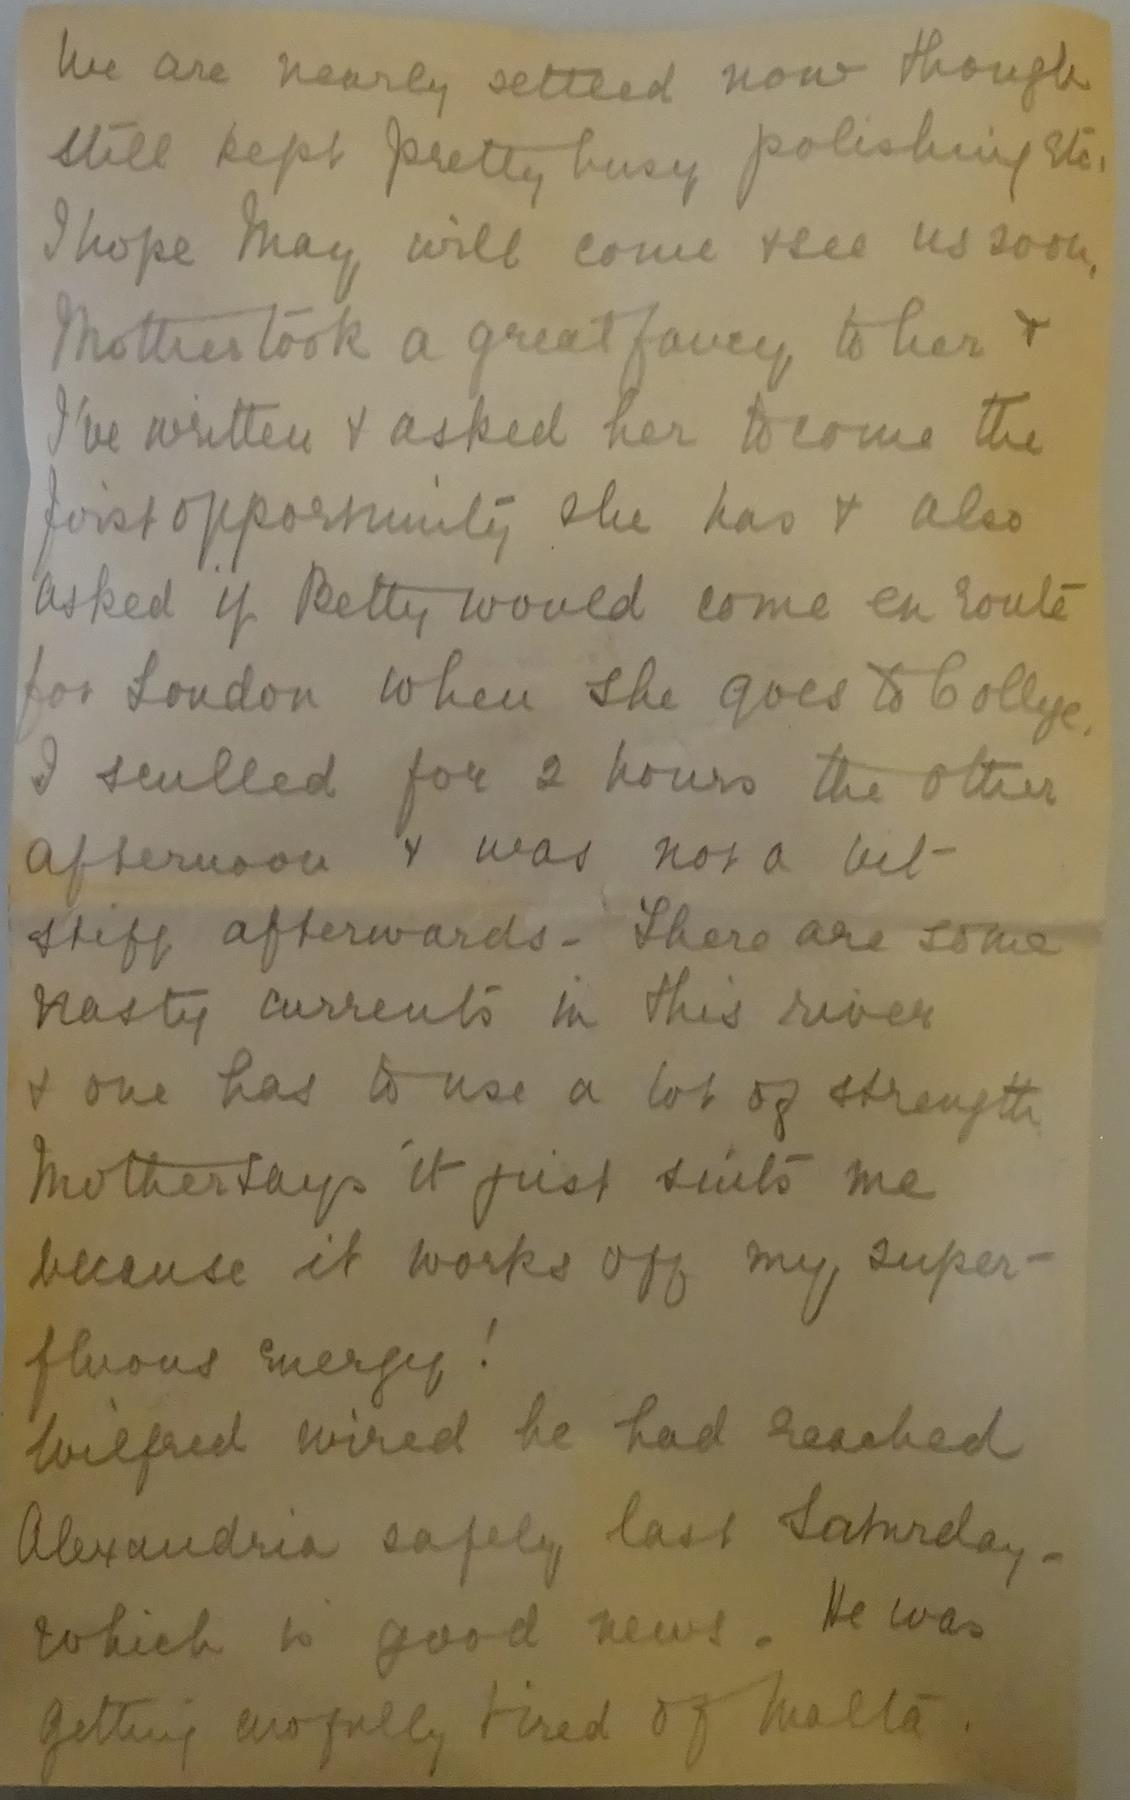 We are nearly settled now though
still kept pretty busy polishing etc.
I hope May will come & see us soon.
Mother took a great fancy to her &
I've written & asked her to come the
first opportunity she has & also
asked if Betty would come en route
for London when she goes to College.
I sculled for 2 hours the other
afternoon & was not a bit
stiff afterwards - There are some
nasty currents in this river
& one has to use a lot of strength
Mother says it just suits me
because it works off my super-
fluous energy!
Wilfred wired he had reached
Alexandria safely last Saturday -
which is good news. He was
getting awfully tired of Malta.